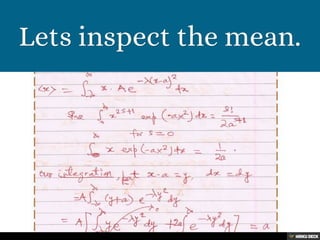 Lets inspect the mean.
<x> = ∫ x. A e^{-λ(x-a)^2} dx
∫ x^{2s+1} exp(-ax^2) dx = s!/2a^{s+1}
for s=0
∫ x exp(-ax^2) dx = 1/2a .
our integration, let x-a=y. dx=dy
=A∫ (y+a) e^{-λy^2} dy
= A[∫ y e^{-λy^2} dy + a∫ e^{-λy^2} dy] = a